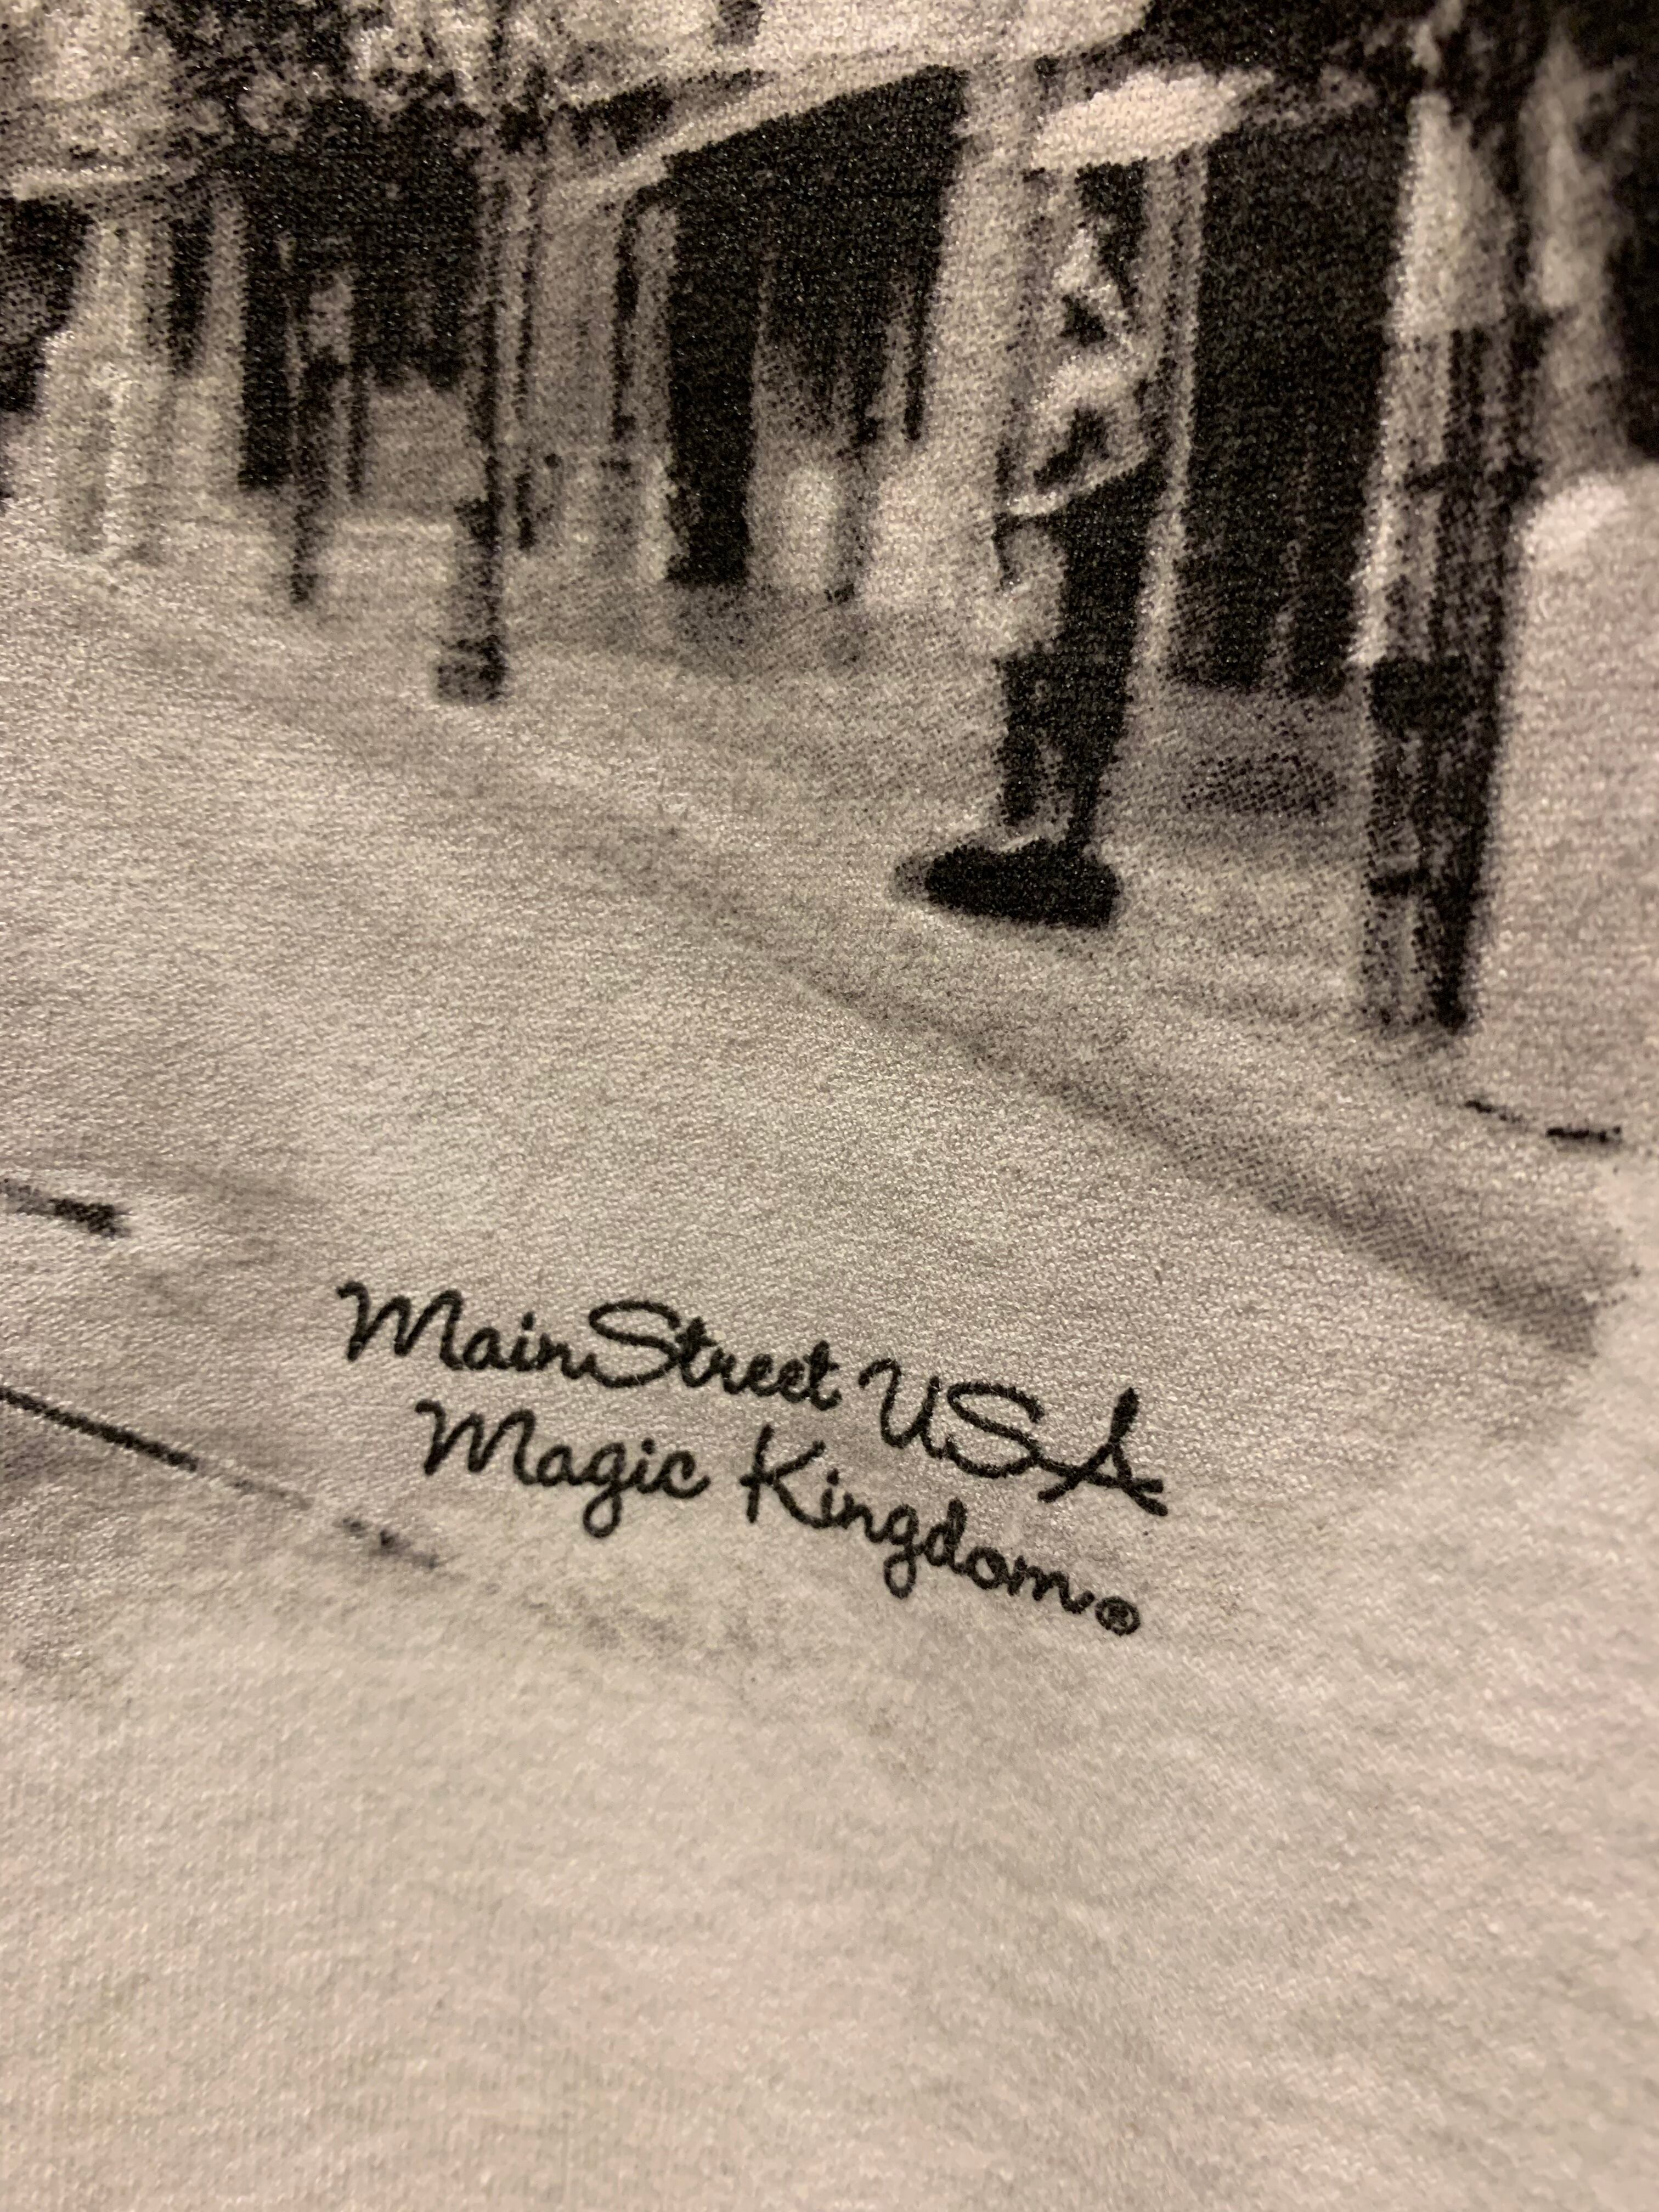 Main Street USA
Magic Kingdom®